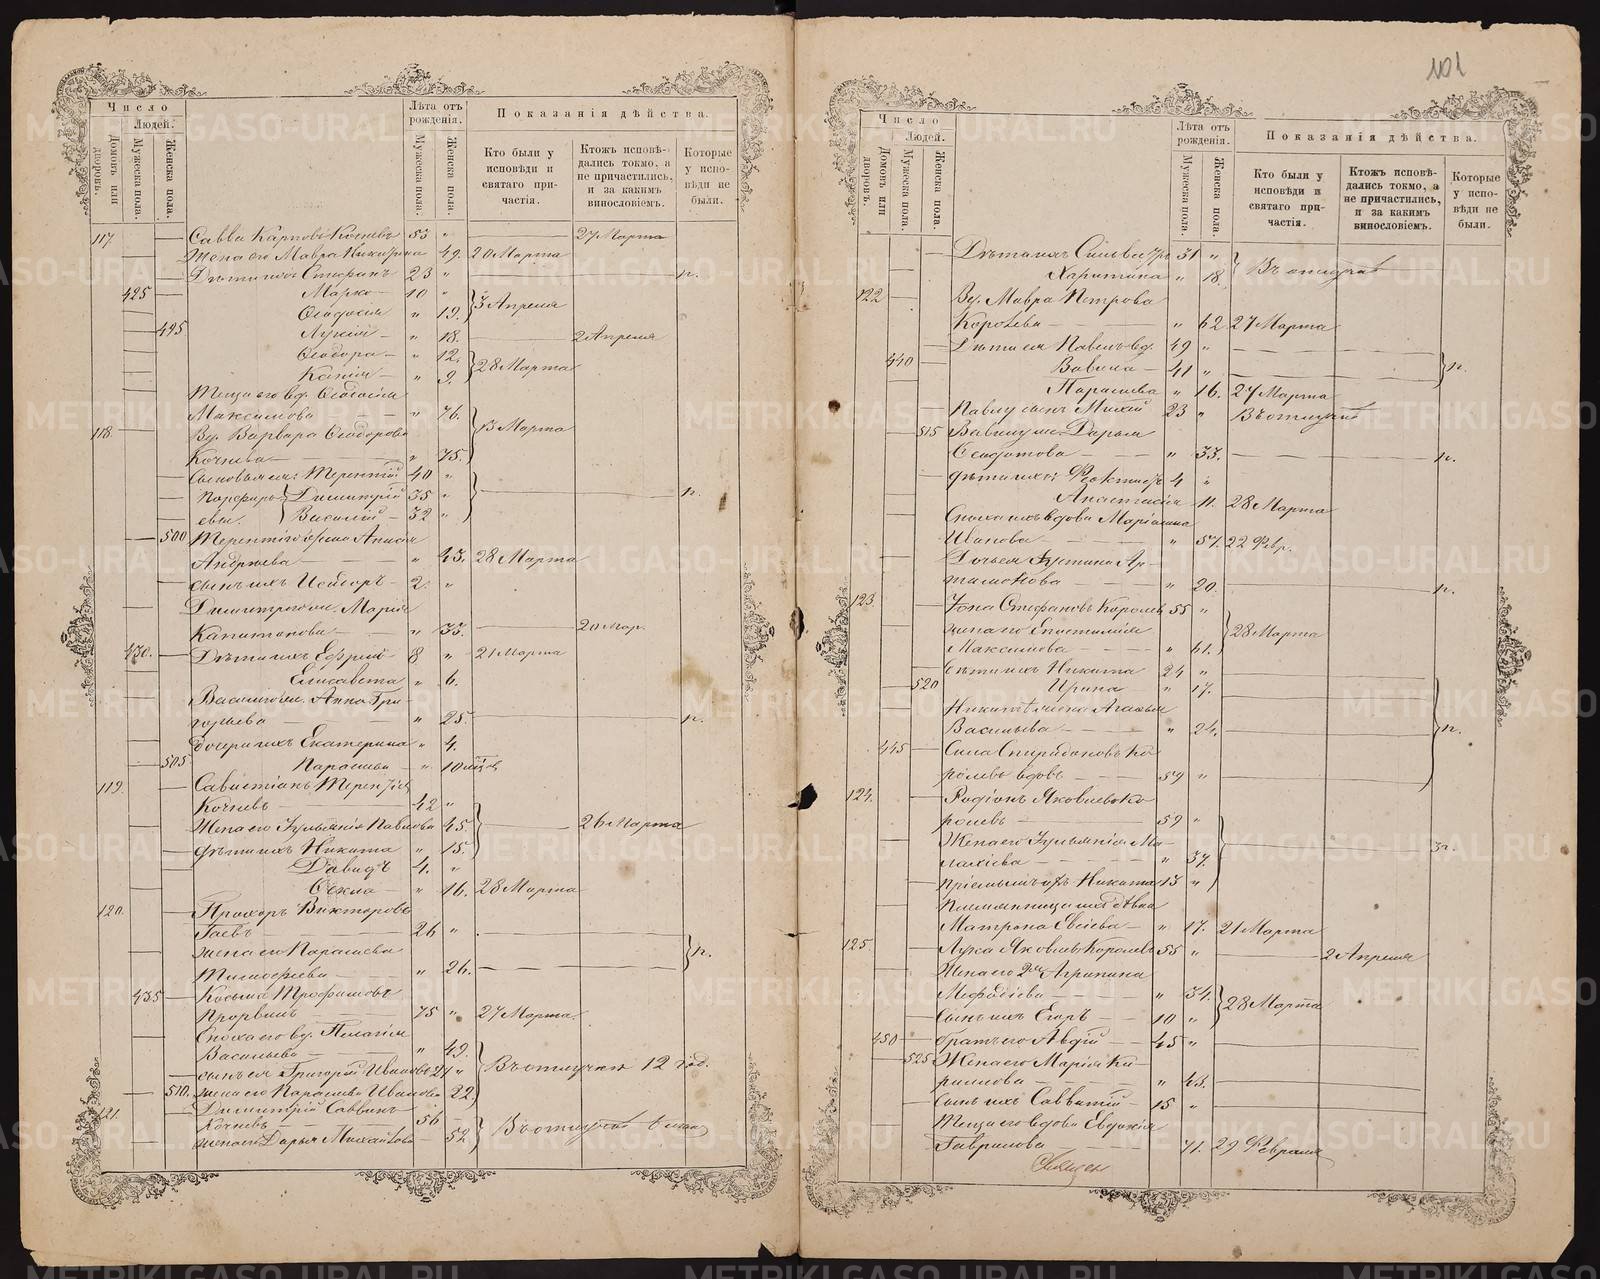 Число
Людей.
Домовъ или дворовъ.
Мужеска пола.
Женска пола.
Лѣта отъ рожденія.
Мужеска пола.
Женска пола.
Показанія дѣйства.
Кто были у исповѣди и святаго причастія.
Ктожъ исповѣдались токмо, а не причастились, и за какимъ винословіемъ.
Которые у исповѣди не были.
117. Савва Карповъ Кочневъ 53 " 27 Марта
Жена его Мавра Никифорова " 49. 20 Марта
Дѣти ихъ Стефанъ 23 " н.
425 Марко 10 "
Ѳеодосія " 19. 3 Апреля
495 Лукія " 18. 2 Апреля
Ѳеодора " 12.
Ксенія " 9. 28 Марта
Теща его вд. Ѳеодосія
Максимова " 76.
118. Вд. Варвара Ѳеодорова 13 Марта
Кочнева " 75.
Сыновья ея: Терентій 40 "
Порфирьевы Димитрій 35 " н.
Василій 32 "
500 Терентію жена Анисія
Андреева " 43. 28 Марта
сынъ ихъ Исидоръ 2. "
Димитрія ж. Марія
Капитонова " 33. 20 Мар.
430. Дѣти ихъ Ефремъ 8 " 21 Марта
Елисавета " 6.
Василію ж. Анна Гри-
горьева " 25. н.
дочери ихъ Екатерина " 4.
505 Параскева " 10 мѣс.
119. Савастіанъ Терентіев
Кочневъ 42 "
Жена его Іульянія Павлова " 45. 26 Марта
дѣти ихъ Никита " 15.
Давидъ 4. "
Ѳекла " 16. 28 Марта
120. Прохоръ Викторовъ
Гаевъ 26 "
жена его Параскева н.
Тимофеева " 26.
435 Косьма Трофимовъ
75 " 27 Марта.
Сноха его вд. Пелагія
Васильева " 49.
сынъ ея Григорій Ивановъ 21 " Въ отлучкѣ 12 год.
510. жена его Параскева Иванова 22.
121. Димитрій Саввинъ
Кочневъ 56
жена его Дарья Михайлова 52 Въ отлучкѣ
101
Число
Людей.
Домовъ или дворовъ.
Мужеска пола.
Женска пола.
Лѣта отъ рожденія.
Мужеска пола.
Женска пола.
Показанія дѣйства.
Кто были у исповѣди и святаго причастія.
Ктожъ исповѣдались токмо, а не причастились, и за какимъ винословіемъ.
Которые у исповѣди не были.
Дѣти ихъ Сильвестръ 31 "
Харитина " 18. Въ отлучкѣ
122 Вд. Мавра Петрова
Королева " 62 27 Марта
Дѣти ея Павелъ вд. 49 "
440 Вавила 41 " н.
Параскева " 16. 27 Марта
Павлу сынъ Михей 23 " Въ отлучкѣ
515 Вавилу ж. Дарья
Ѳеодотова " 33. н.
дѣти ихъ: Феоктистъ 4 "
Анастасія 11. 28 Марта
Сноха ихъ вдова Маріамна
Иванова " 57. 22 Февр.
Дочь ея Іустина Ар-
тамонова " 20. н.
123. Іона Стефановъ Королевъ 55 "
жена его Епистимія 28 Марта
Максимова " 61.
дѣти ихъ Никита 24 "
520 Ирина " 17.
Никитѣ жена Агафья
Васильева " 24. н.
445 Сила Спиридоновъ Ко-
ролевъ вдовъ 59 "
124. Родіонъ Яковлевъ Ко-
ролевъ 59 "
Жена его Іульянія Ма-
лахіева " 37. н.
пріемышъ ихъ Никита 13 "
Племянница ихъ дѣвка
Матрона Евсіева " 17. 21 Марта
125. Лука Яковлевъ Королевъ 55 " 2 Апреля
Жена его 2я Агрипина
Меѳодіева " 34. 28 Марта
Сынъ ихъ Егоръ 10 "
450 братъ его Авдій 45 "
525 Жена его Марія Ки-
рилова " 43.
Сынъ ихъ Савватій 15 "
Теща его вдова Евдокія
Гаврилова " 71. 29 Февраля
Священ
METRIKI.GASO-URAL.RU